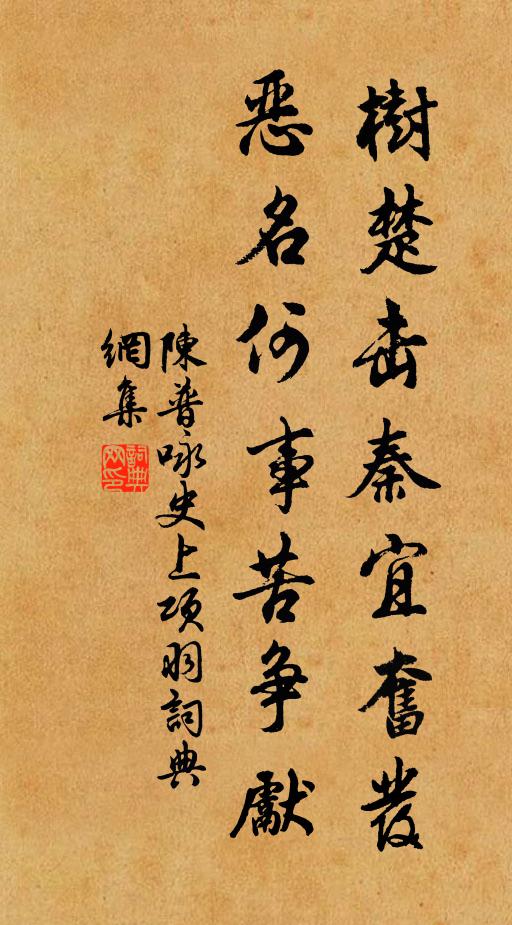 樹楚击秦宜奮發
惡名何事苦争獻
陳普咏史上項羽詞典
網集
詞典網印